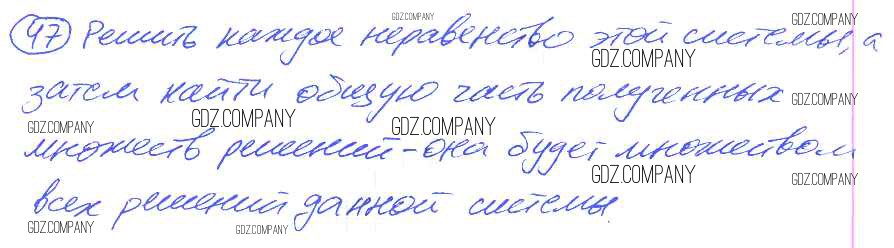 GDZ.COMPANY GDZ.COMPANY
47 Решить каждое неравенство этой системы, а
GDZ.COMPANY
затем найти общую часть полученных GDZ.COMPANY
GDZ.COMPANY GDZ.COMPANY GDZ.COMPANY
множеств решений – она будет множеством
GDZ.COMPANY GDZ.COMPANY
всех решений данной системы
GDZ.COMPANY GDZ.COMPANY GDZ.COMPANY